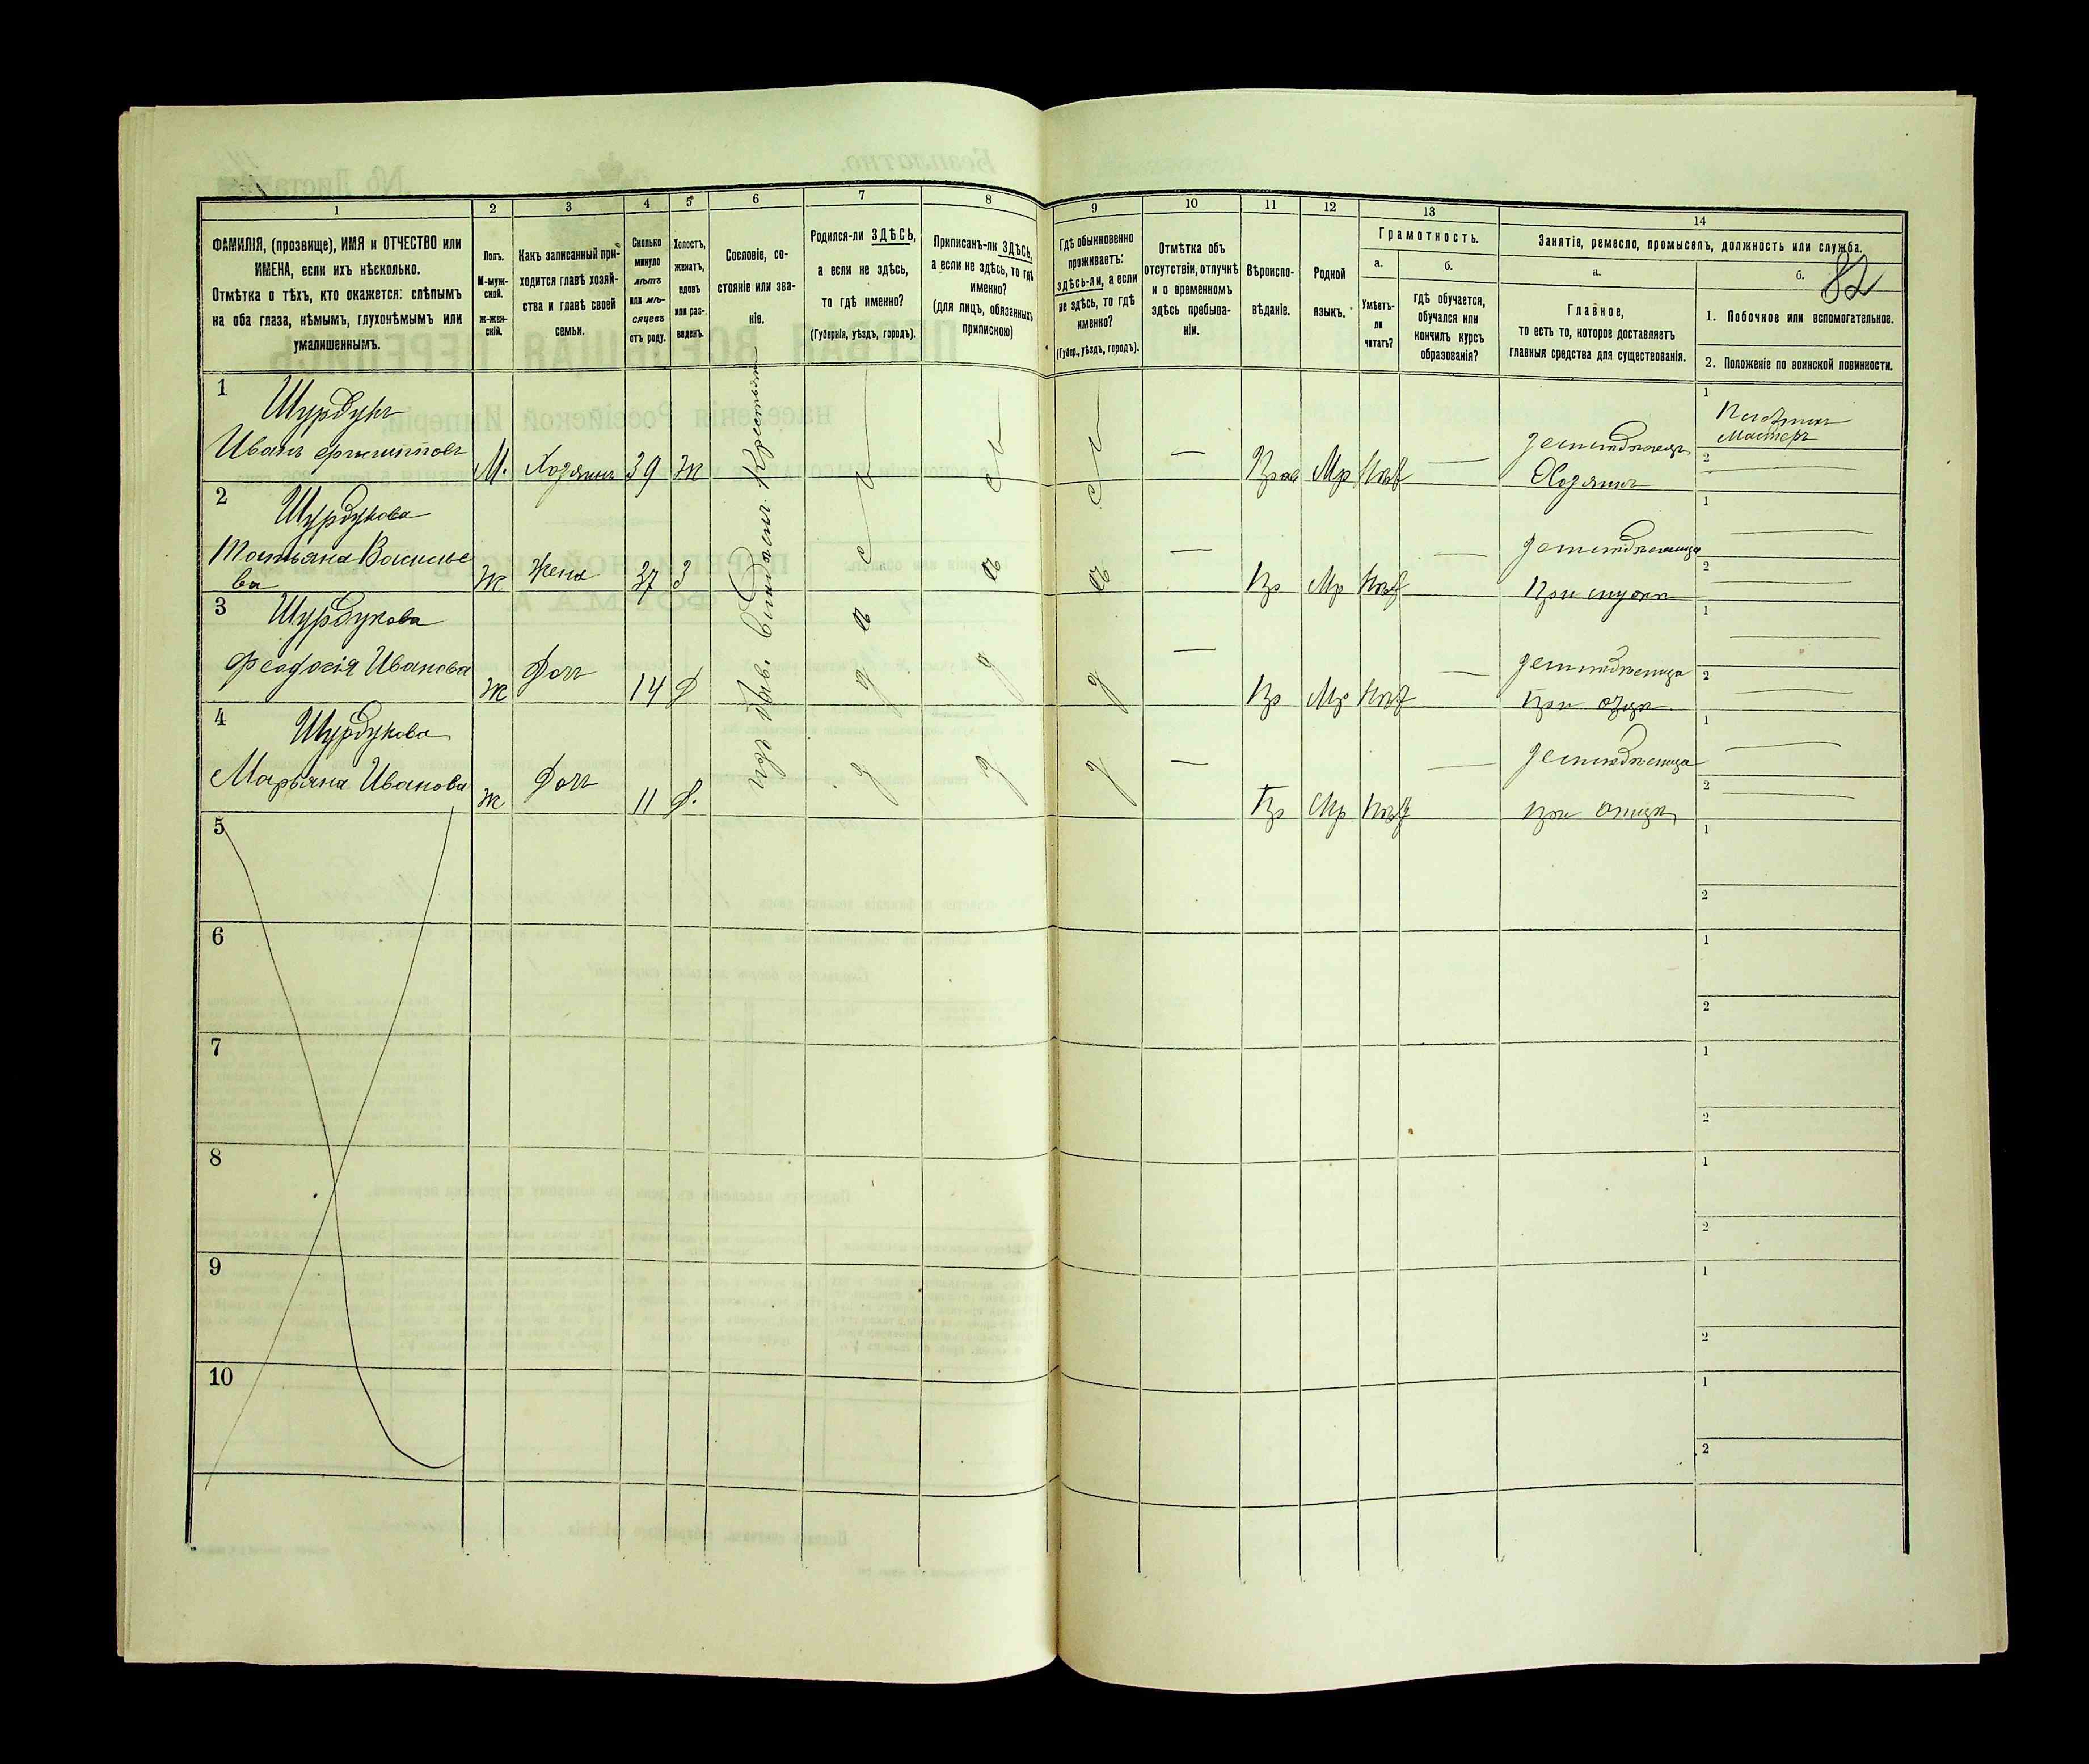 82
1 2 3 4 5 6 7 8 9 10 11 12 13 14
ФАМИЛІЯ, (прозвище), ИМЯ и ОТЧЕСТВО или
ИМЕНА, если ихъ нѣсколько.
Отмѣтка о тѣхъ, кто окажется: слѣпымъ
на оба глаза, нѣмымъ, глухонѣмымъ или
умалишеннымъ.
Полъ.
М-муж-
ской.
Ж-жен-
скій.
Какъ записанный при-
ходится главѣ хозяй-
ства и главѣ своей
семьи.
Сколько
минуло
лѣтъ
или мѣ-
сяцевъ
отъ роду.
Холостъ,
женатъ,
вдовъ
или раз-
веденъ.
Сословіе, со-
стояніе или зва-
ніе.
Родился-ли ЗДѢСЬ,
а если не здѣсь,
то гдѣ именно?
(Губернія, уѣздъ, городъ).
Приписанъ-ли ЗДѢСЬ,
а если не здѣсь, то гдѣ
именно?
(для лицъ, обязанныхъ
припискою)
Гдѣ обыкновенно
проживаетъ:
здѣсь-ли, а если
не здѣсь, то гдѣ
именно?
(Губер., уѣздъ, городъ).
Отмѣтка объ
отсутствіи, отлучкѣ
и о временномъ
здѣсь пребыва-
ніи.
Вѣроиспо-
вѣданіе.
Родной
языкъ.
Грамотность.
а.
Умѣетъ-
ли
читать?
б.
гдѣ обучается,
обучался или
кончилъ курсъ
образованія?
Занятіе, ремесло, промыселъ, должность или служба.
а.
Главное,
то есть то, которое доставляетъ
главныя средства для существованія.
б.
1. Побочное или вспомогательное.
2. Положеніе по воинской повинности.
1
Шурдукъ
Иванъ Филипповъ
М. Хозяинъ 39 Ж
Прав Мр Нѣт
Земледѣлецъ
Хозяинъ
1
Мастеръ
2
2
Шурдукова
Татьяна Василье
ва
Ж Жена 37 З
Пр Мр Нѣт
Земледѣлица
При мужѣ
1
2
3
Шурдукова
Феодосія Иванова
Ж Дочь 14 Д
Пр Мр Нѣт
Земледѣлица
При отцѣ
1
2
4
Шурдукова
Марьяна Иванова
Ж Дочь 11 Д.
Пр Мр Нѣт
Земледѣлица
при отцѣ
1
2
изъ быв. владѣл. Крестьян
здѣсь
здѣсь
здѣсь
5
1
2
6
1
2
7
1
2
8
1
2
9
1
2
10
1
2